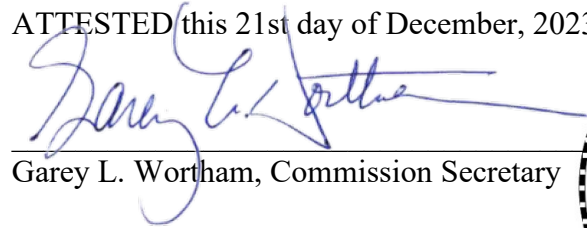 ATTESTED this 21st day of December, 2023
Garey L. Wortham
Garey L. Wortham, Commission Secretary